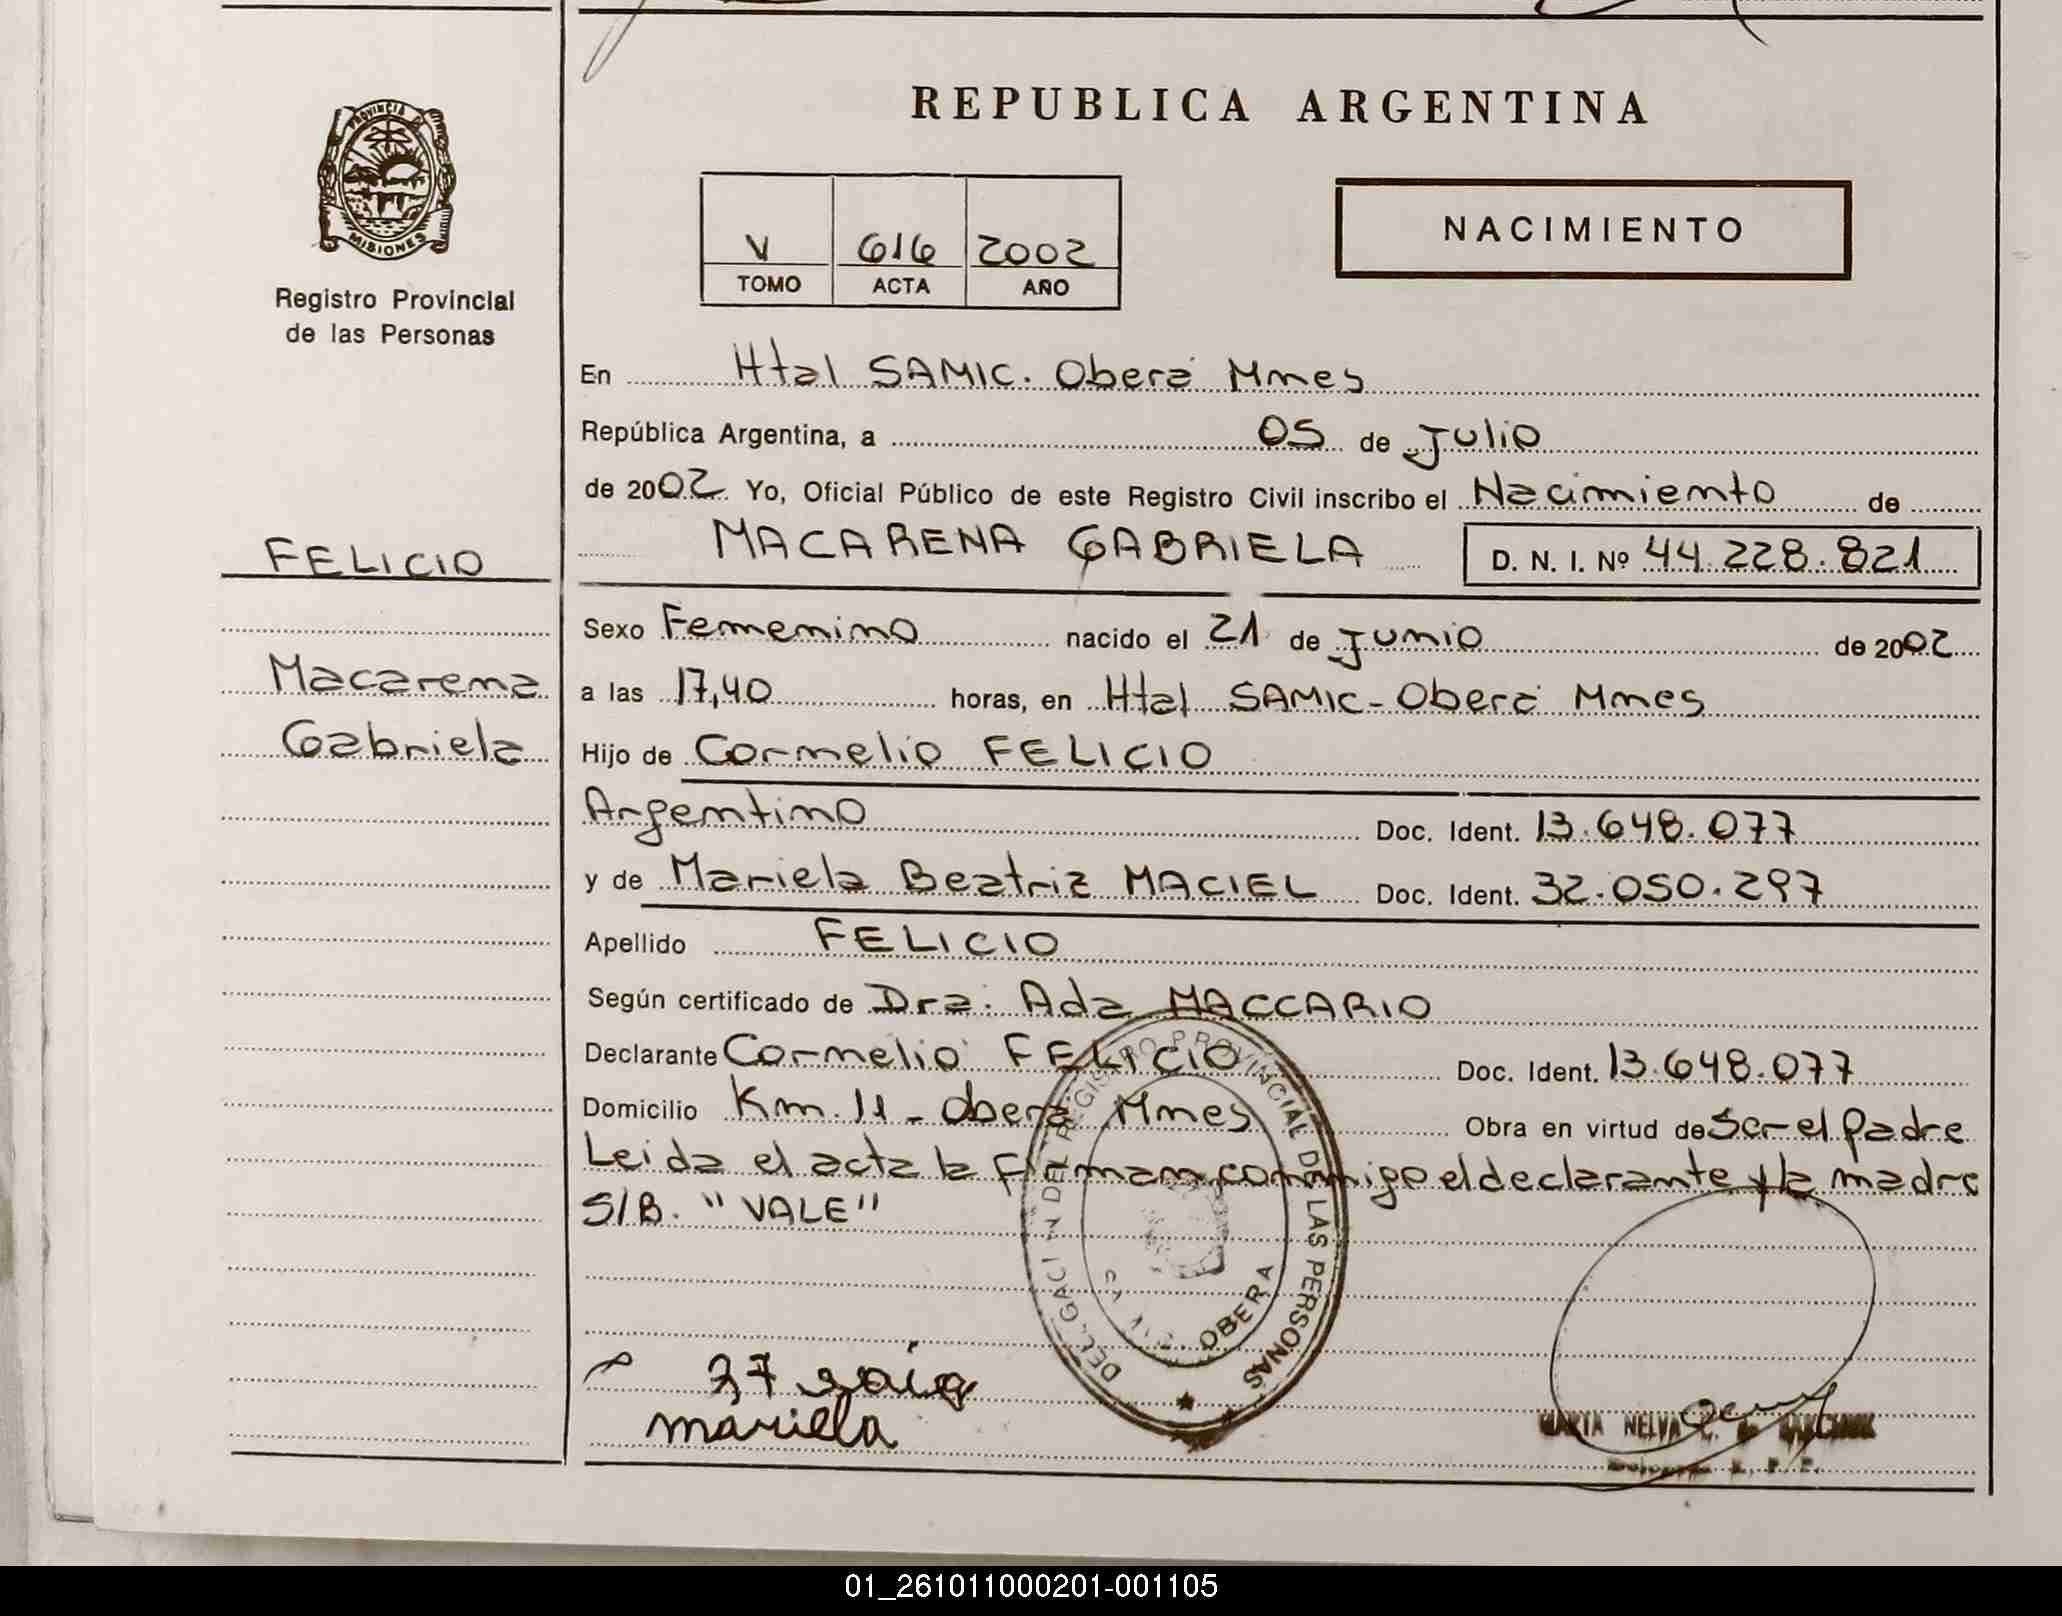 REPUBLICA ARGENTINA
PROVINCIA D
MISIONES
Registro Provincial
de las Personas
V 616 2002
TOMO ACTA AÑO
NACIMIENTO
En Htal SAMIC. Oberá Mnes
República Argentina, a 05 de Julio
de 2002 Yo, Oficial Público de este Registro Civil inscribo el Nacimiento de
FELICIO
MACARENA GABRIELA D. N. I. Nº 44.228.821
Sexo Femenino nacido el 21 de Junio de 2002
Macarena
a las 17,40 horas, en Htal SAMIC-Oberá Mnes
Gabriela
Hijo de Cornelio FELICIO
Argentino Doc. Ident. 13.648.077
y de Mariela Beatriz MACIEL Doc. Ident. 32.050.297
Apellido FELICIO
Según certificado de Dra. Ada MACCARIO
Declarante Cornelio FELICIO Doc. Ident. 13.648.077
Domicilio Km. 11 - Oberá Mnes Obra en virtud de Ser el padre
Leida el acta la firman conmigo el declarante y la madre
S/B. "VALE"
REGISTRO PROVINCIAL DE LAS PERSONAS
OBERA
mariela
NELVA
01_261011000201-001105